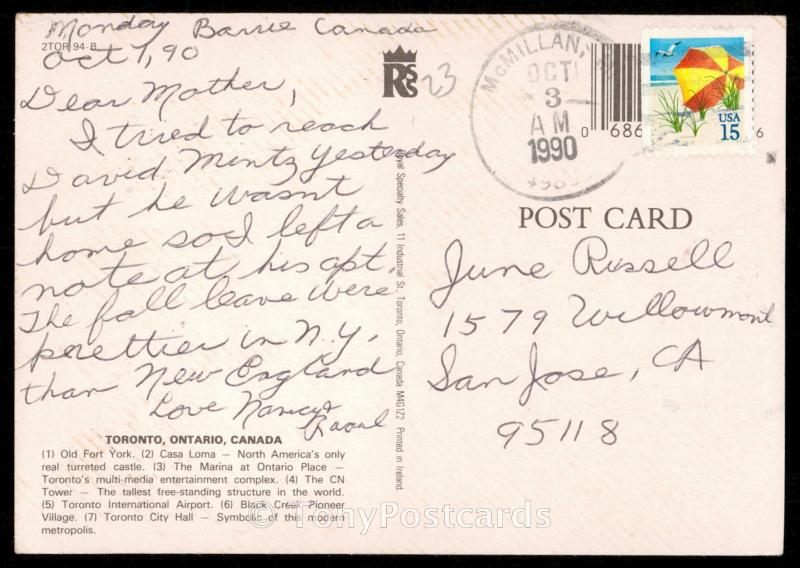 Monday Barrie Canada
2TOR 94-B
Oct 1, 90
Dear Mother,
I tried to reach
David Mintz yesterday
but he wasn't
home so I left a
note at his apt.
The fall leave were
prettier in N.Y.
than New England
Love Nancy &
Raoul
TORONTO, ONTARIO, CANADA
(1) Old Fort York. (2) Casa Loma — North America's only
real turreted castle. (3) The Marina at Ontario Place —
Toronto's multi-media entertainment complex. (4) The CN
Tower — The tallest free-standing structure in the world.
(5) Toronto International Airport. (6) Black Creek Pioneer
Village. (7) Toronto City Hall — Symbolic of this modern
metropolis.
RSS
23
Royal Specialty Sales, 11 Industrial St., Toronto, Ontario, Canada M4G1Z2 Printed in Ireland.
McMILLAN,
OCT
3
AM
1990
0 686
6
USA
15
POST CARD
June Russell
1579 Willowmont
San Jose, CA
95118
© TonyPostcards